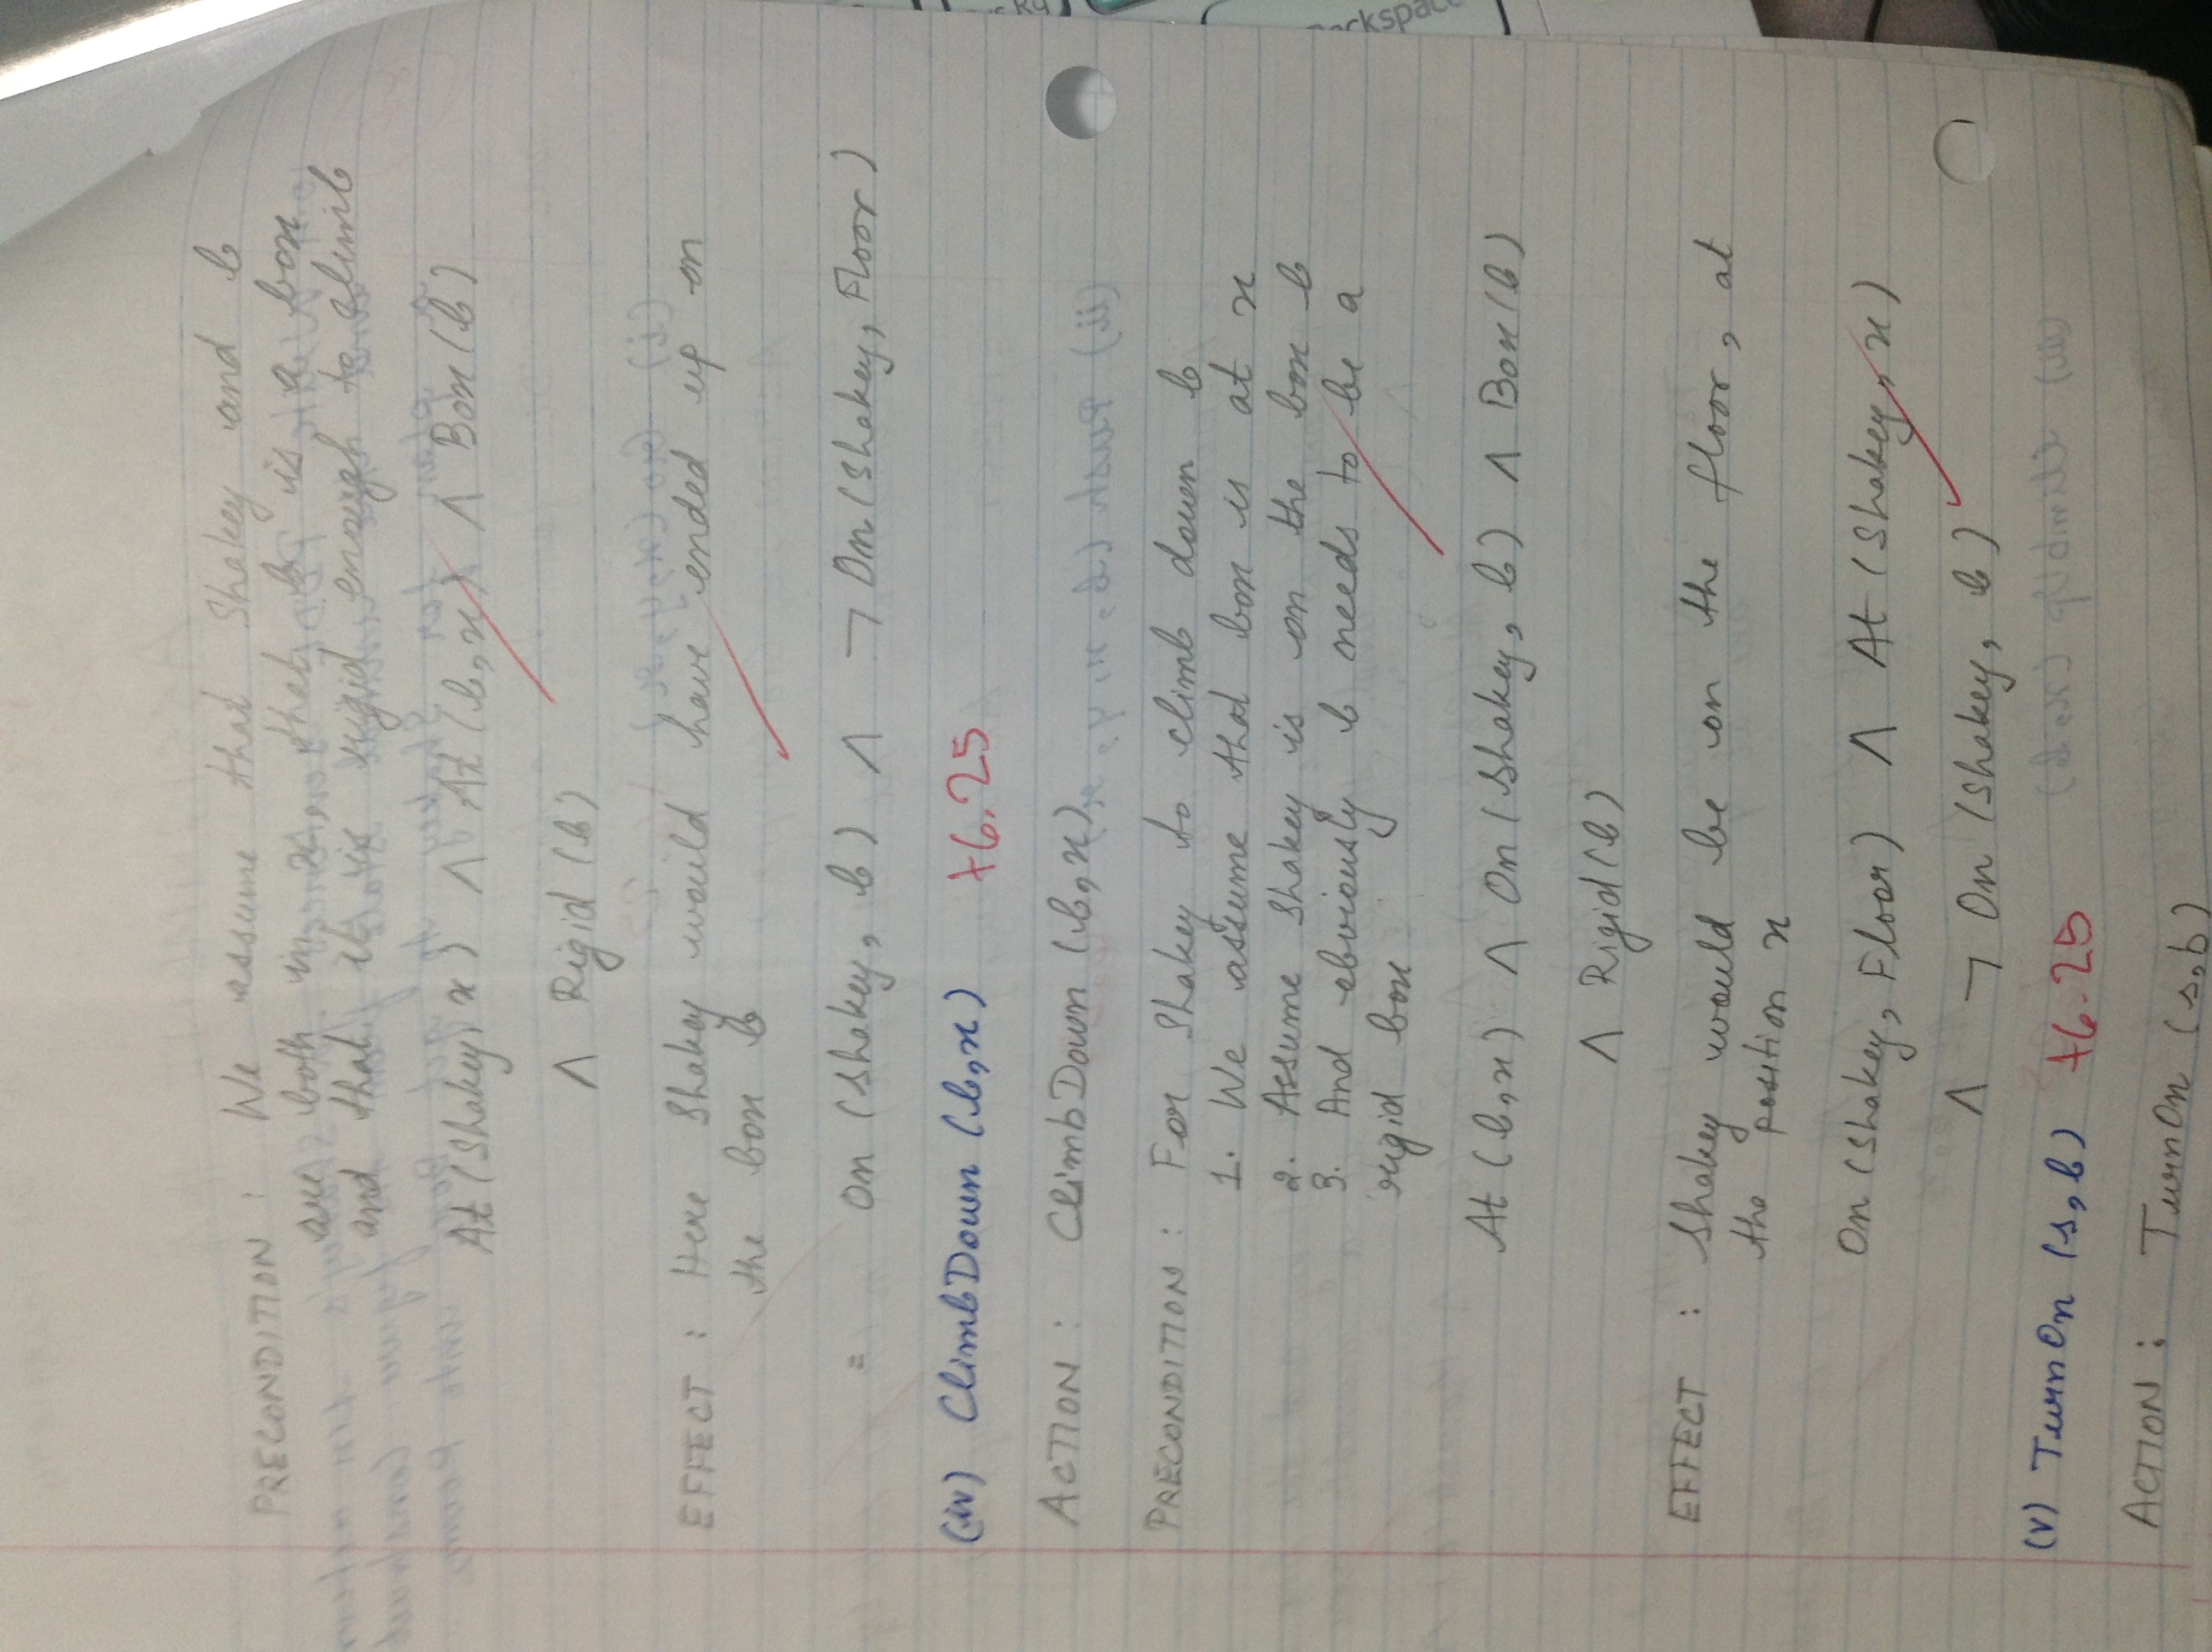 PRECONDITION : We assume that Shakey and b
are both in x, that b is a box
and that it is rigid enough to climb
At (Shakey, x) ∧ At (b,x) ∧ Box(b)
∧ Rigid (b)
EFFECT : Here Shakey would have ended up on
the box b
= On (Shakey, b) ∧ ¬ On (Shakey, Floor)
(iv) ClimbDown (b,x) +6.25
ACTION : ClimbDown (b,x)
PRECONDITION : For Shakey to climb down b
1. We assume that box is at x
2. Assume Shakey is on the box b
3. And obviously b needs to be a
rigid box
At (b,x) ∧ On (Shakey, b) ∧ Box(b)
∧ Rigid(b)
EFFECT : Shakey would be on the floor, at
the position x
On (Shakey, Floor) ∧ At (Shakey, x)
∧ ¬ On (Shakey, b)
(v) TurnOn (s,b) +6.25
ACTION : TurnOn (s,b)